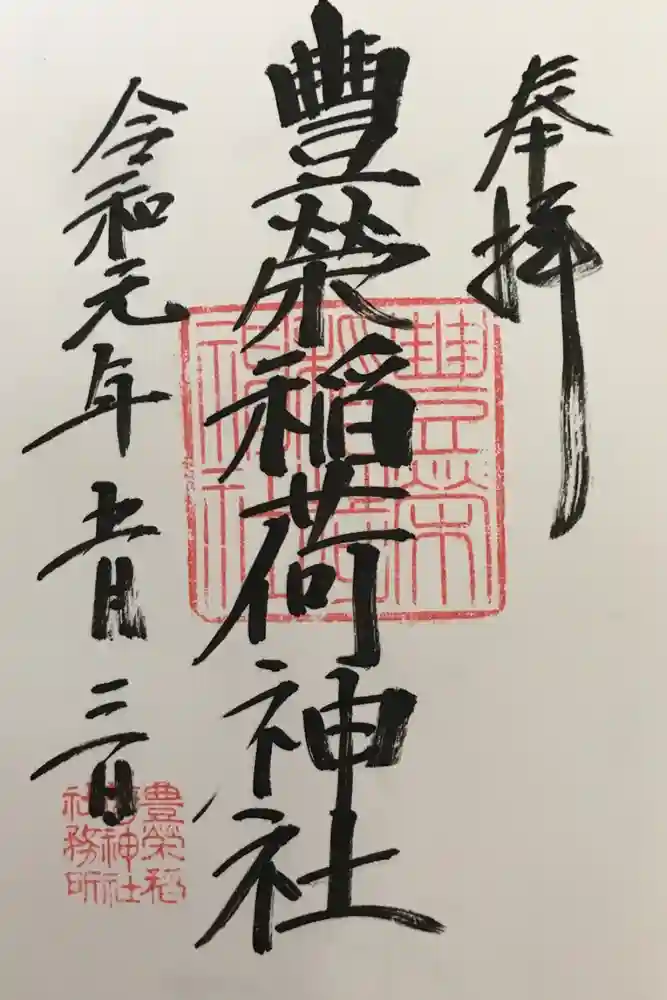 奉拝
豐榮稲荷神社
令和元年五月三日
豊榮
稲荷
神社
豊榮稲
荷神社
社務所